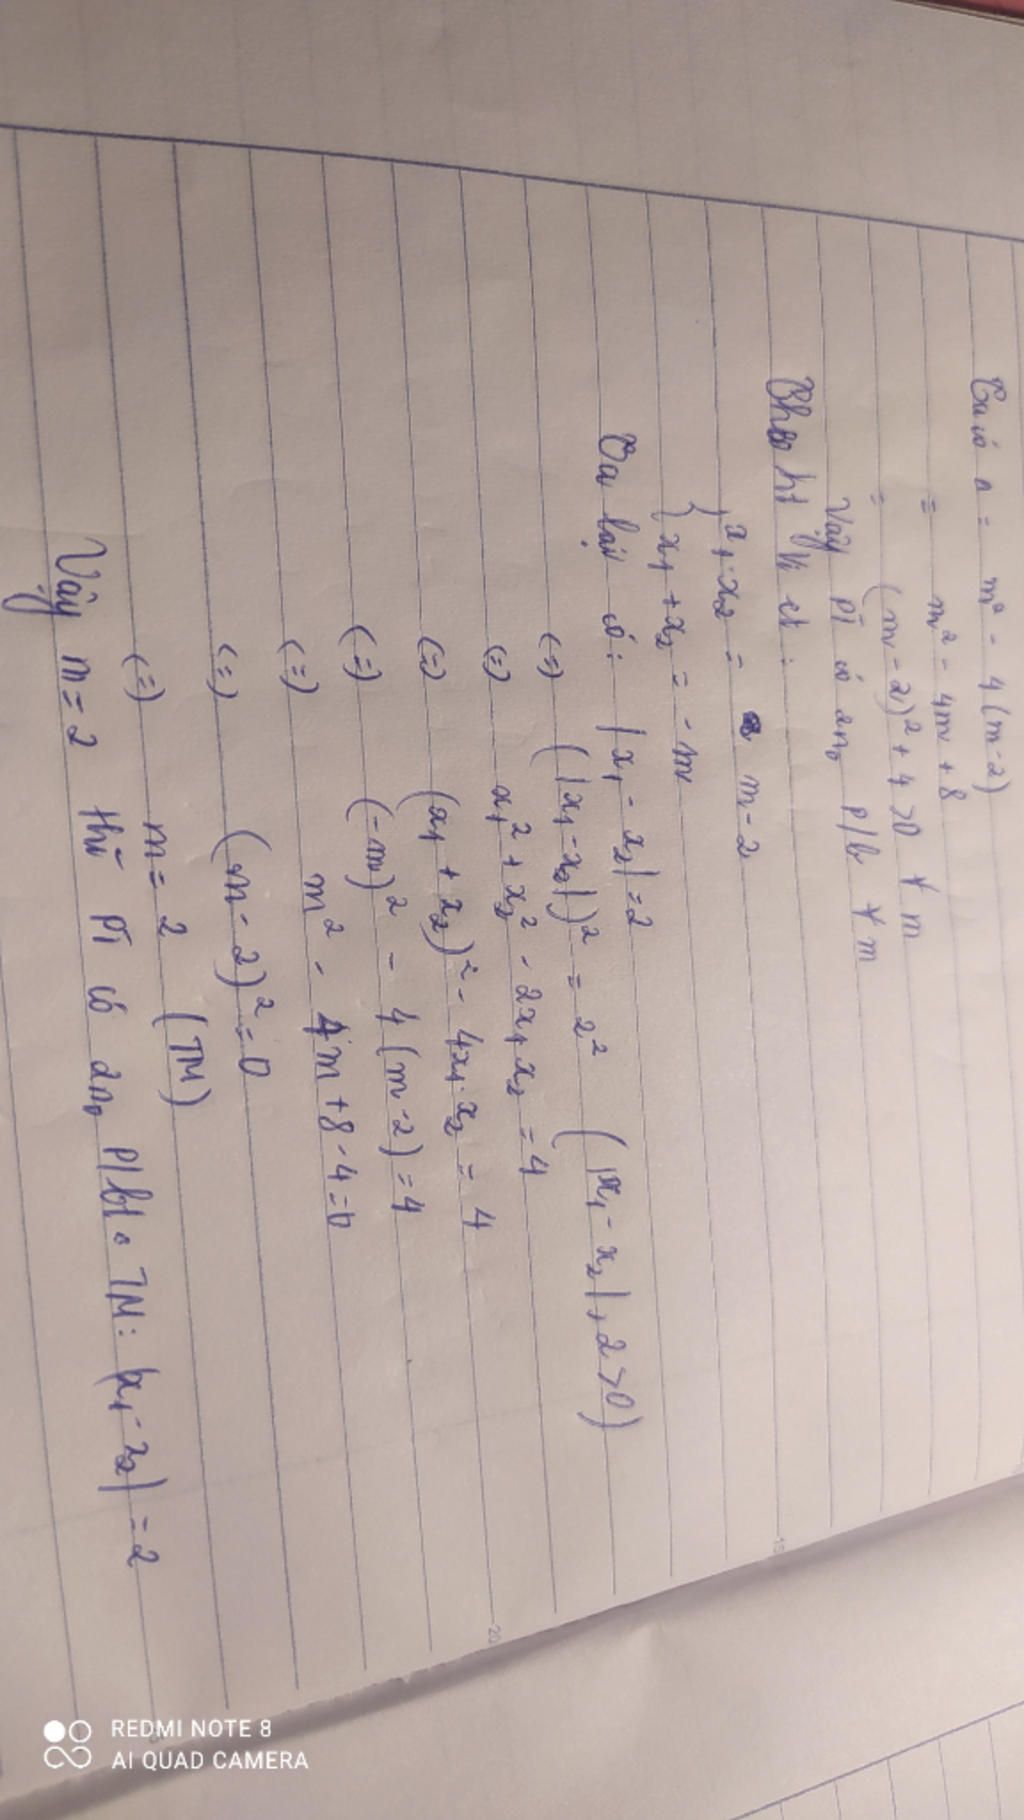 Ta có Δ = m² - 4(m-2)
= m² - 4m + 8
= (m-2)² + 4 > 0 ∀ m
Vậy PT có 2n₀ p/b ∀ m
Theo ht Vi et :
{ x₁.x₂ = m-2
{ x₁ + x₂ = -m
Ta lại có: |x₁ - x₂| = 2
(=) (|x₁ - x₂|)² = 2² (|x₁ - x₂|, 2 > 0)
(=) x₁² + x₂² - 2x₁x₂ = 4
(=) (x₁ + x₂)² - 4x₁.x₂ = 4
(=) (-m)² - 4(m-2) = 4
(=) m² - 4m + 8 - 4 = 0
(=) (m-2)² = 0
(=) m = 2 (TM)
Vậy m = 2 thì PT có 2n₀ p/b TM: |x₁ - x₂| = 2
15
20
REDMI NOTE 8
AI QUAD CAMERA